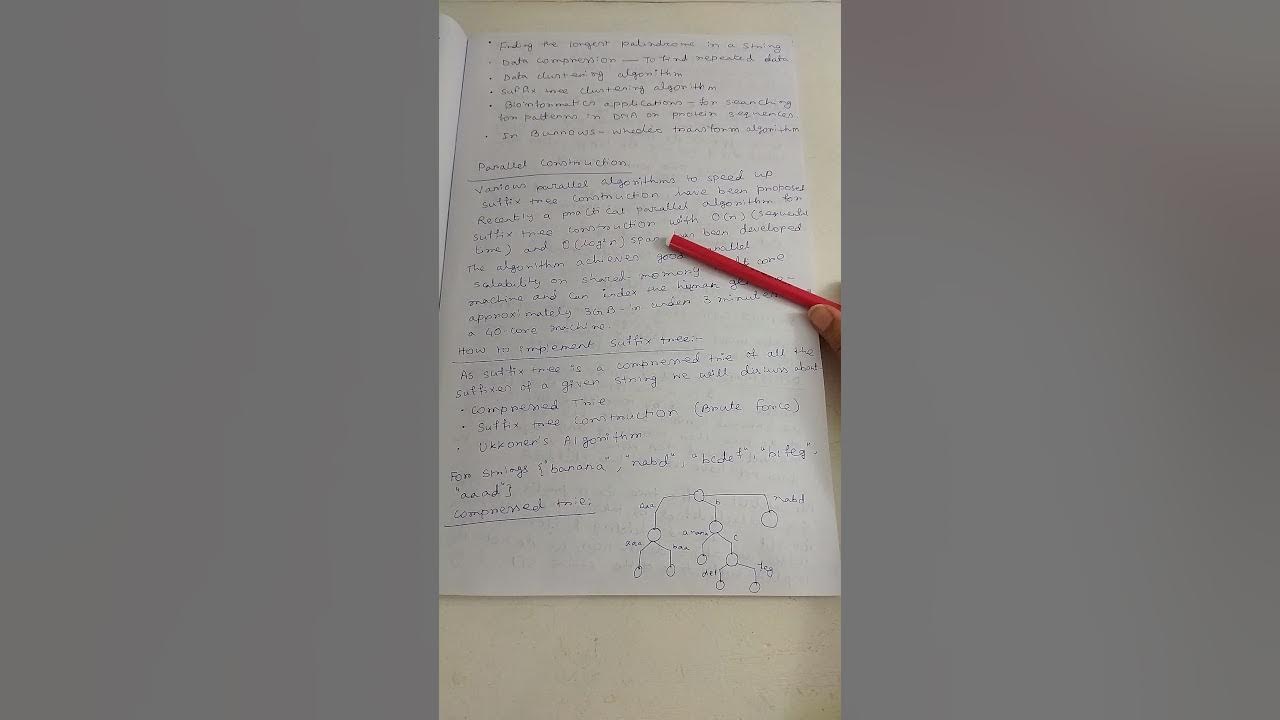 • Finding the longest palindrome in a string
• Data compression — To find repeated data
• Data clustering algorithm
• Suffix tree clustering algorithm
• Bioinformatics applications – for searching
for patterns in DNA or protein sequences.
• In Burrows – wheeler transform algorithm
Parallel Construction
Various parallel algorithms to speed up
suffix tree construction have been proposed
Recently a practical parallel algorithm for
suffix tree construction with O(n) (sequential
time) and span has been developed
The algorithm achieves good parallel
scalability on shared-memory core
machine and can index the human
approximately 3GB – in under 3 minutes
a 40-core machine.
How to implement suffix tree:-
As suffix tree is a compressed trie of all the
suffixes of a given string we will discuss about
• Compressed Trie
• Suffix tree Construction (Brute Force)
• Ukkonen's Algorithm
For strings {"banana", "nabd", "bcdef", "bcfeg",
"aaad"}
Compressed trie:
aaa b nabd
aaa baa anana c
def feg